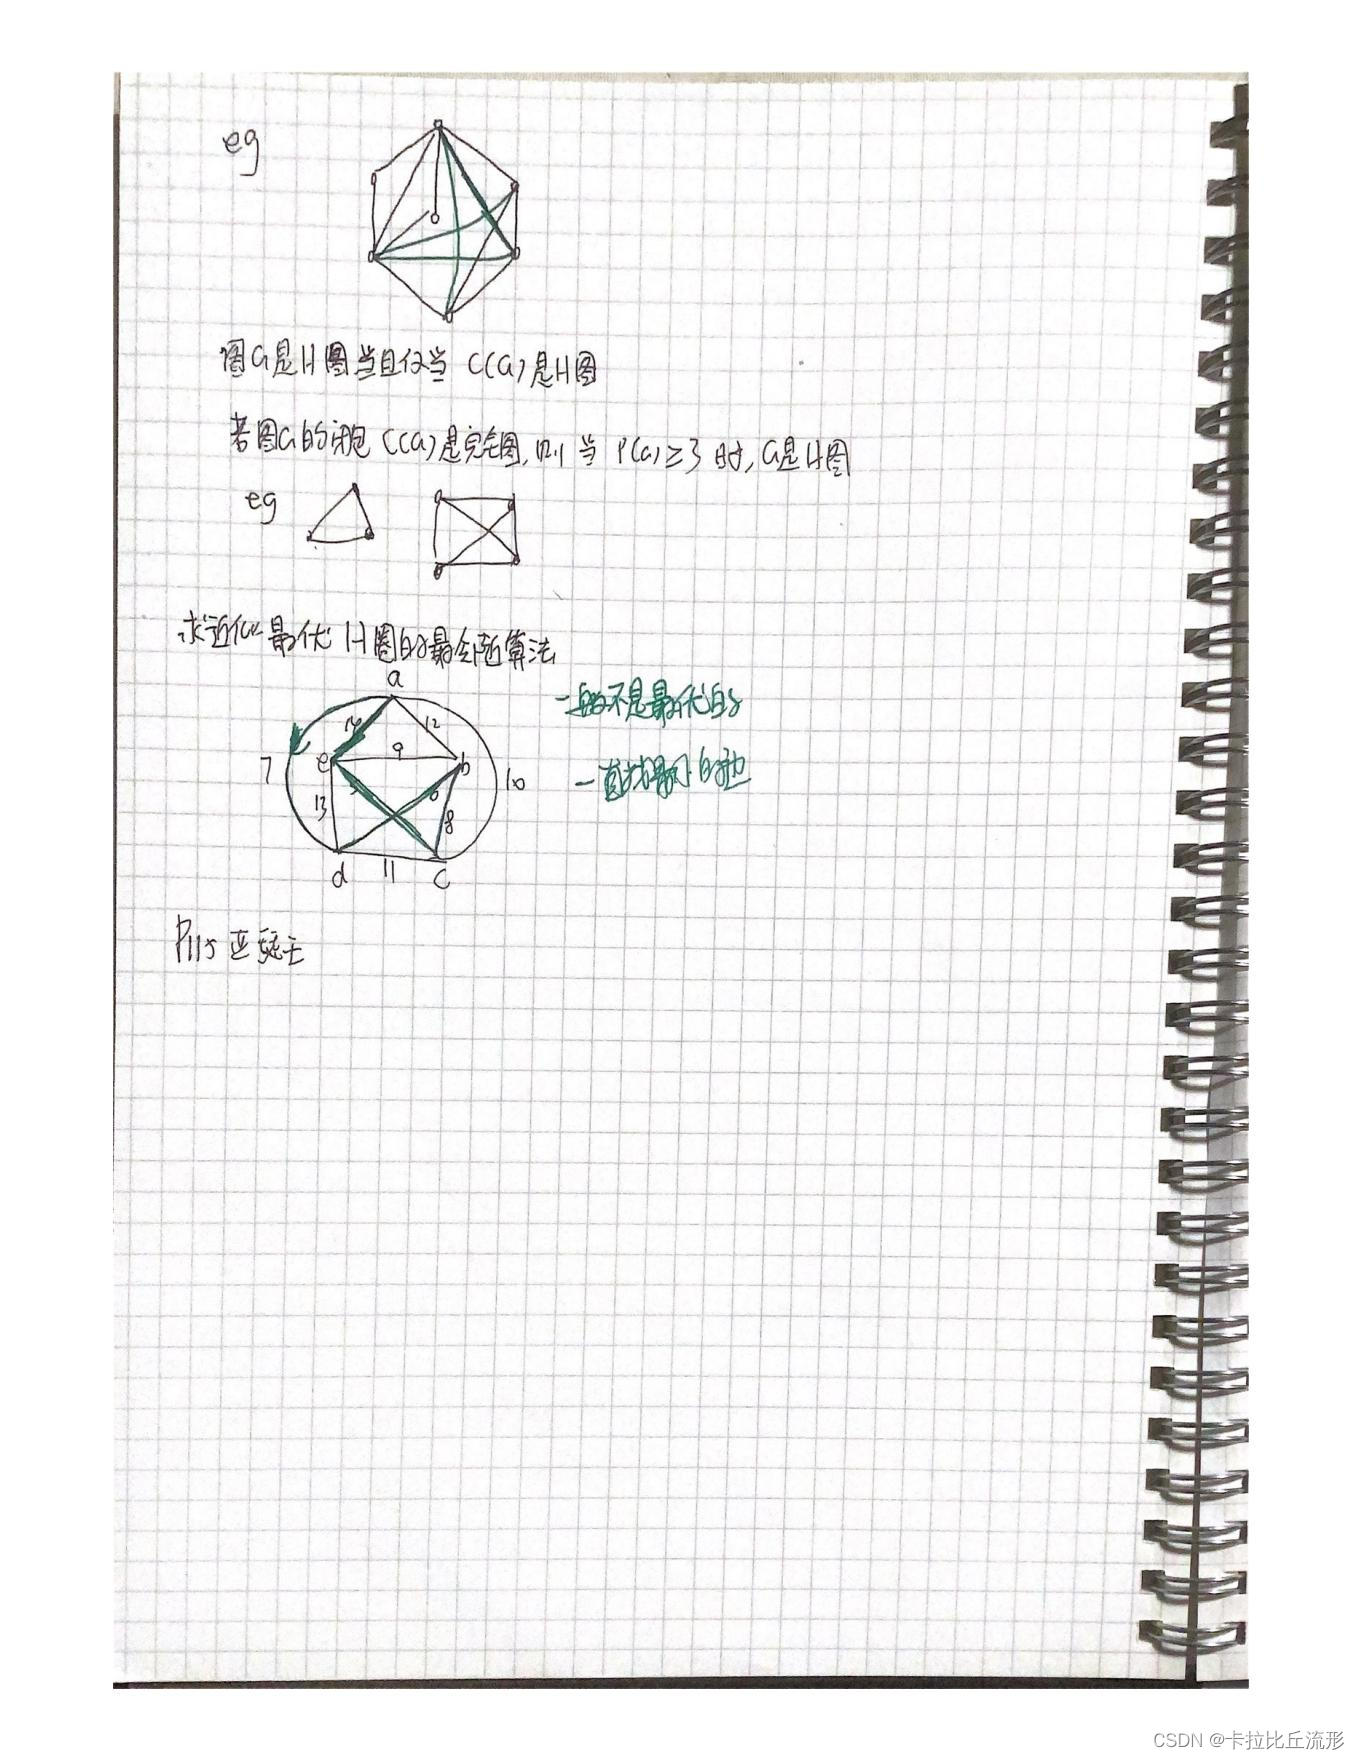 eg
图G是H图当且仅当 C(G)是H图
若图G的闭包 C(G)是完全图,则当 P(G)≥3 时,G是H图
eg
求近似最优 H圈的最邻近算法
a
一般不是最优的
14 12
e 9 b
一直找最小的边
7 10
13 5 6 8
d 11 c
P115
CSDN @卡拉比丘流形